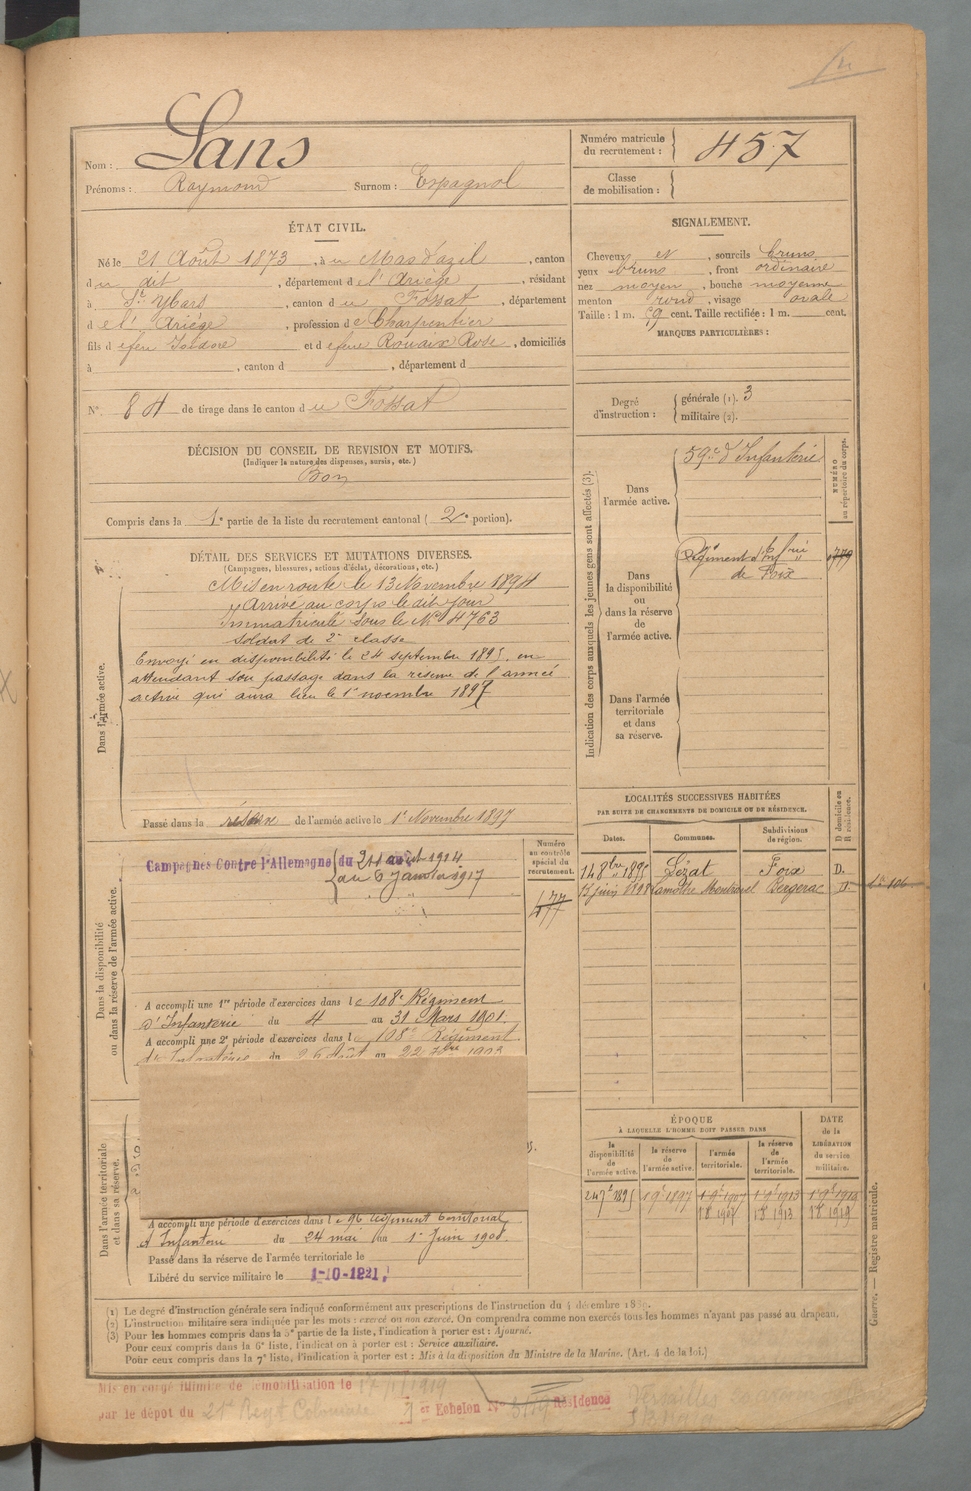 Nom : Sans
Prénoms : Raymond Surnom : Espagnol
Numéro matricule du recrutement : 457
Classe de mobilisation :
ÉTAT CIVIL.
Né le 21 Août 1873, à u Mas d'azil, canton
d u dit, département d e l'Ariège, résidant
à St Ybars, canton d u Fossat, département
d e l'Ariège, profession d e Charpentier
fils d e feu Isidore et d e feue Rouaix Rose, domiciliés
à , canton d , département d
N° 84 de tirage dans le canton d u Fossat
SIGNALEMENT.
Cheveux et , sourcils bruns
yeux bruns, front ordinaire
nez moyen, bouche moyenne
menton rond, visage ovale
Taille : 1 m. 69 cent. Taille rectifiée : 1 m. cent.
MARQUES PARTICULIÈRES :
Degré d'instruction : générale (1). 3
militaire (2).
DÉCISION DU CONSEIL DE REVISION ET MOTIFS.
(Indiquer la nature des dispenses, sursis, etc.)
Bon
Compris dans la 1e partie de la liste du recrutement cantonal ( 2e portion).
DÉTAIL DES SERVICES ET MUTATIONS DIVERSES.
(Campagnes, blessures, actions d'éclat, décorations, etc.)
Dans l'armée active.
Mis en route le 13 Novembre 1894
Arrivé au corps le dit jour
Immatriculé sous le N° 4763
soldat de 2e classe
Envoyé en disponibilité le 24 septembre 1895, en
attendant son passage dans la réserve de l'armée
active qui aura lieu le 1er novembre 1897
Passé dans la réserve de l'armée active le 1er Novembre 1897
Indication des corps auxquels les jeunes gens sont affectés (3).
NUMÉRO au répertoire du corps.
Dans l'armée active.
59e d'Infanterie
Dans la disponibilité ou dans la réserve de l'armée active.
Régiment d'Infrie
de Foix
Dans l'armée territoriale et dans sa réserve.
Dans la disponibilité ou dans la réserve de l'armée active.
Numéro au contrôle spécial du recrutement.
477
Campagnes Contre l'Allemagne du
1914
au 6 Janvier 1917
A accompli une 1re période d'exercices dans l e 108e Régiment
d'Infanterie du 4 au 31 Mars 1901
A accompli une 2e période d'exercices dans l e 108e Régiment
d'Infanterie du 26 Août au 22 7bre 1903
LOCALITÉS SUCCESSIVES HABITÉES
PAR SUITE DE CHANGEMENTS DE DOMICILE OU DE RÉSIDENCE.
Dates. Communes. Subdivisions de région. D domicile ou R résidence.
Lézat Foix D.
15 juin 1898 Lamothe Montravel Bergerac D.
Dans l'armée territoriale et dans sa réserve.
A accompli une période d'exercices dans l e 96 Régiment territorial
d'Infanterie du 24 mai au 1er Juin 1908.
Passé dans la réserve de l'armée territoriale le
Libéré du service militaire le 1-10-1921
ÉPOQUE
À LAQUELLE L'HOMME DOIT PASSER DANS
la disponibilité de l'armée active. la réserve de l'armée active. l'armée territoriale. la réserve de l'armée territoriale. DATE de la LIBÉRATION du service militaire.
24 7e 1895 1 9e 1897 1 9e 1907 1 9e 1913 1 9e 1919
1 8 1907 1 8 1913 1 8 1919
(1) Le degré d'instruction générale sera indiqué conformément aux prescriptions de l'instruction du 4 décembre 1889.
(2) L'instruction militaire sera indiquée par les mots : exercé ou non exercé. On comprendra comme non exercés tous les hommes n'ayant pas passé au drapeau.
(3) Pour les hommes compris dans la 5e partie de la liste, l'indication à porter est : Ajourné.
Pour ceux compris dans la 6e liste, l'indication à porter est : Service auxiliaire.
Pour ceux compris dans la 7e liste, l'indication à porter est : Mis à la disposition du Ministre de la Marine. (Art. 4 de la loi.)
Guerre. — Registre matricule.
Mis en congé illimité de démobilisation le 1919
par le dépôt du 21e Régt Colonial Echelon N° Résidence Versailles